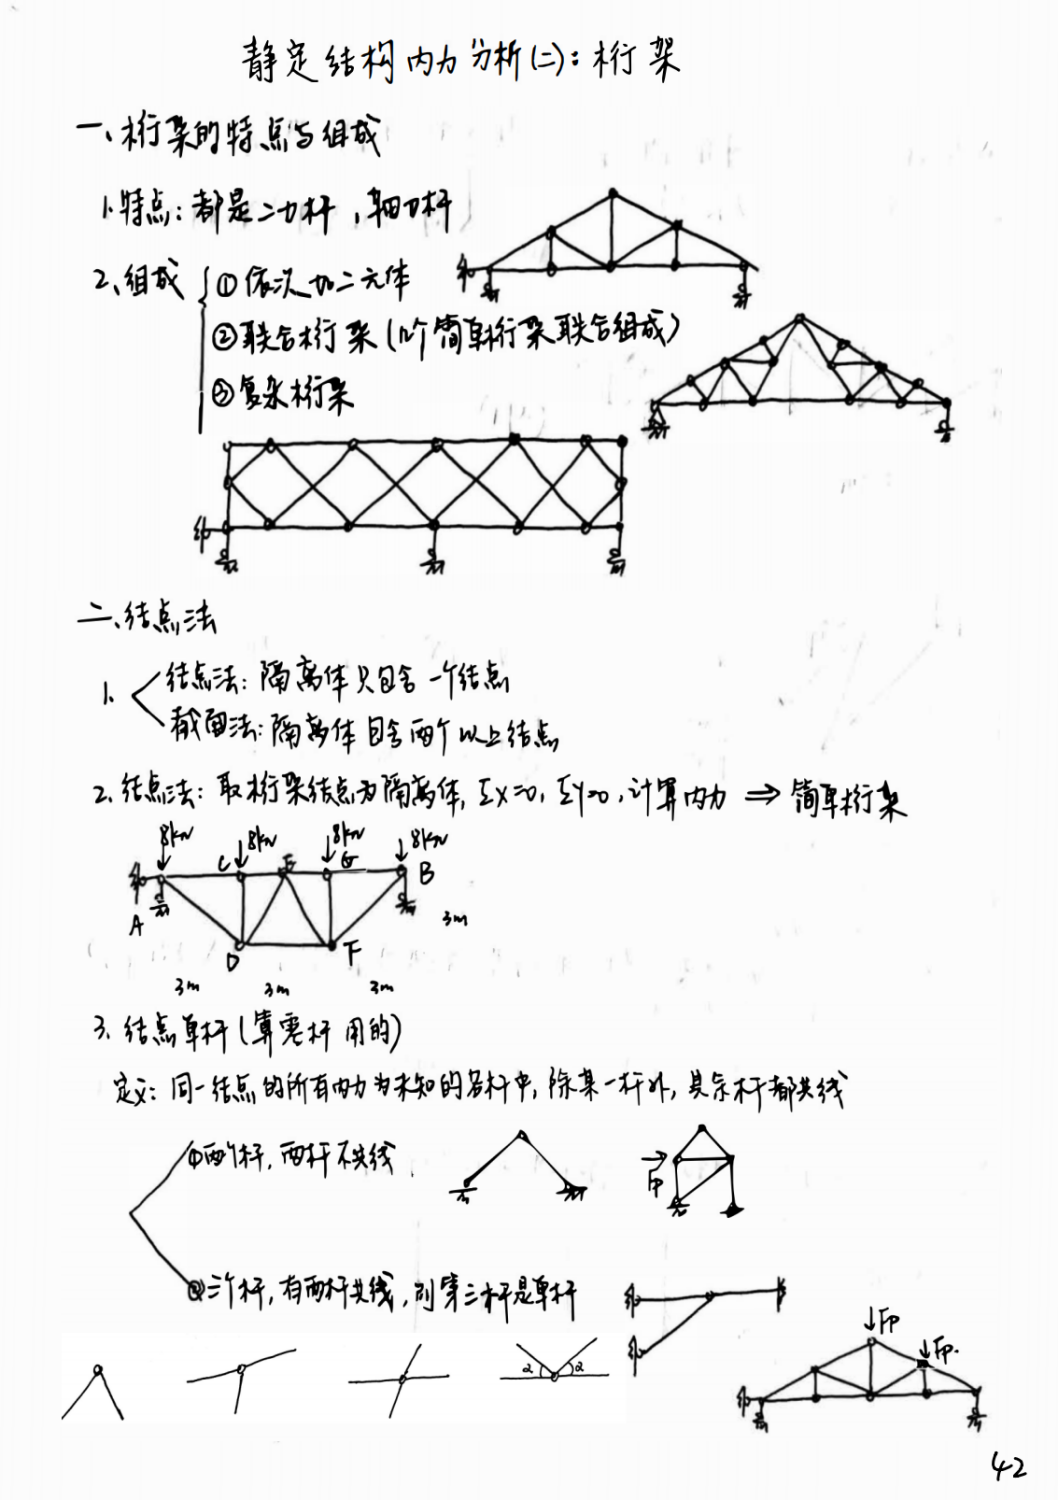 静定结构内力分析(二):桁架
一、桁架的特点与组成
1.特点:都是二力杆,轴力杆
2、组成 ①依次加二元体
②联合桁架(几个简单桁架联合组成)
③复杂桁架
二、结点法
1. 结点法:隔离体只包含一个结点
截面法:隔离体包含两个以上结点
2.结点法:取桁架结点为隔离体,ΣX=0,ΣY=0,计算内力 ⇒ 简单桁架
8kN 8kN 8kN 8kN
A C E G B
3m
D F
3m 3m 3m
3.结点单杆(算零杆用的)
定义:同一结点的所有内力为未知的各杆中,除某一杆外,其余杆都共线
①两个杆,两杆不共线
Fp
②三个杆,有两杆共线,则第三杆是单杆
Fp
Fp.
α α
42